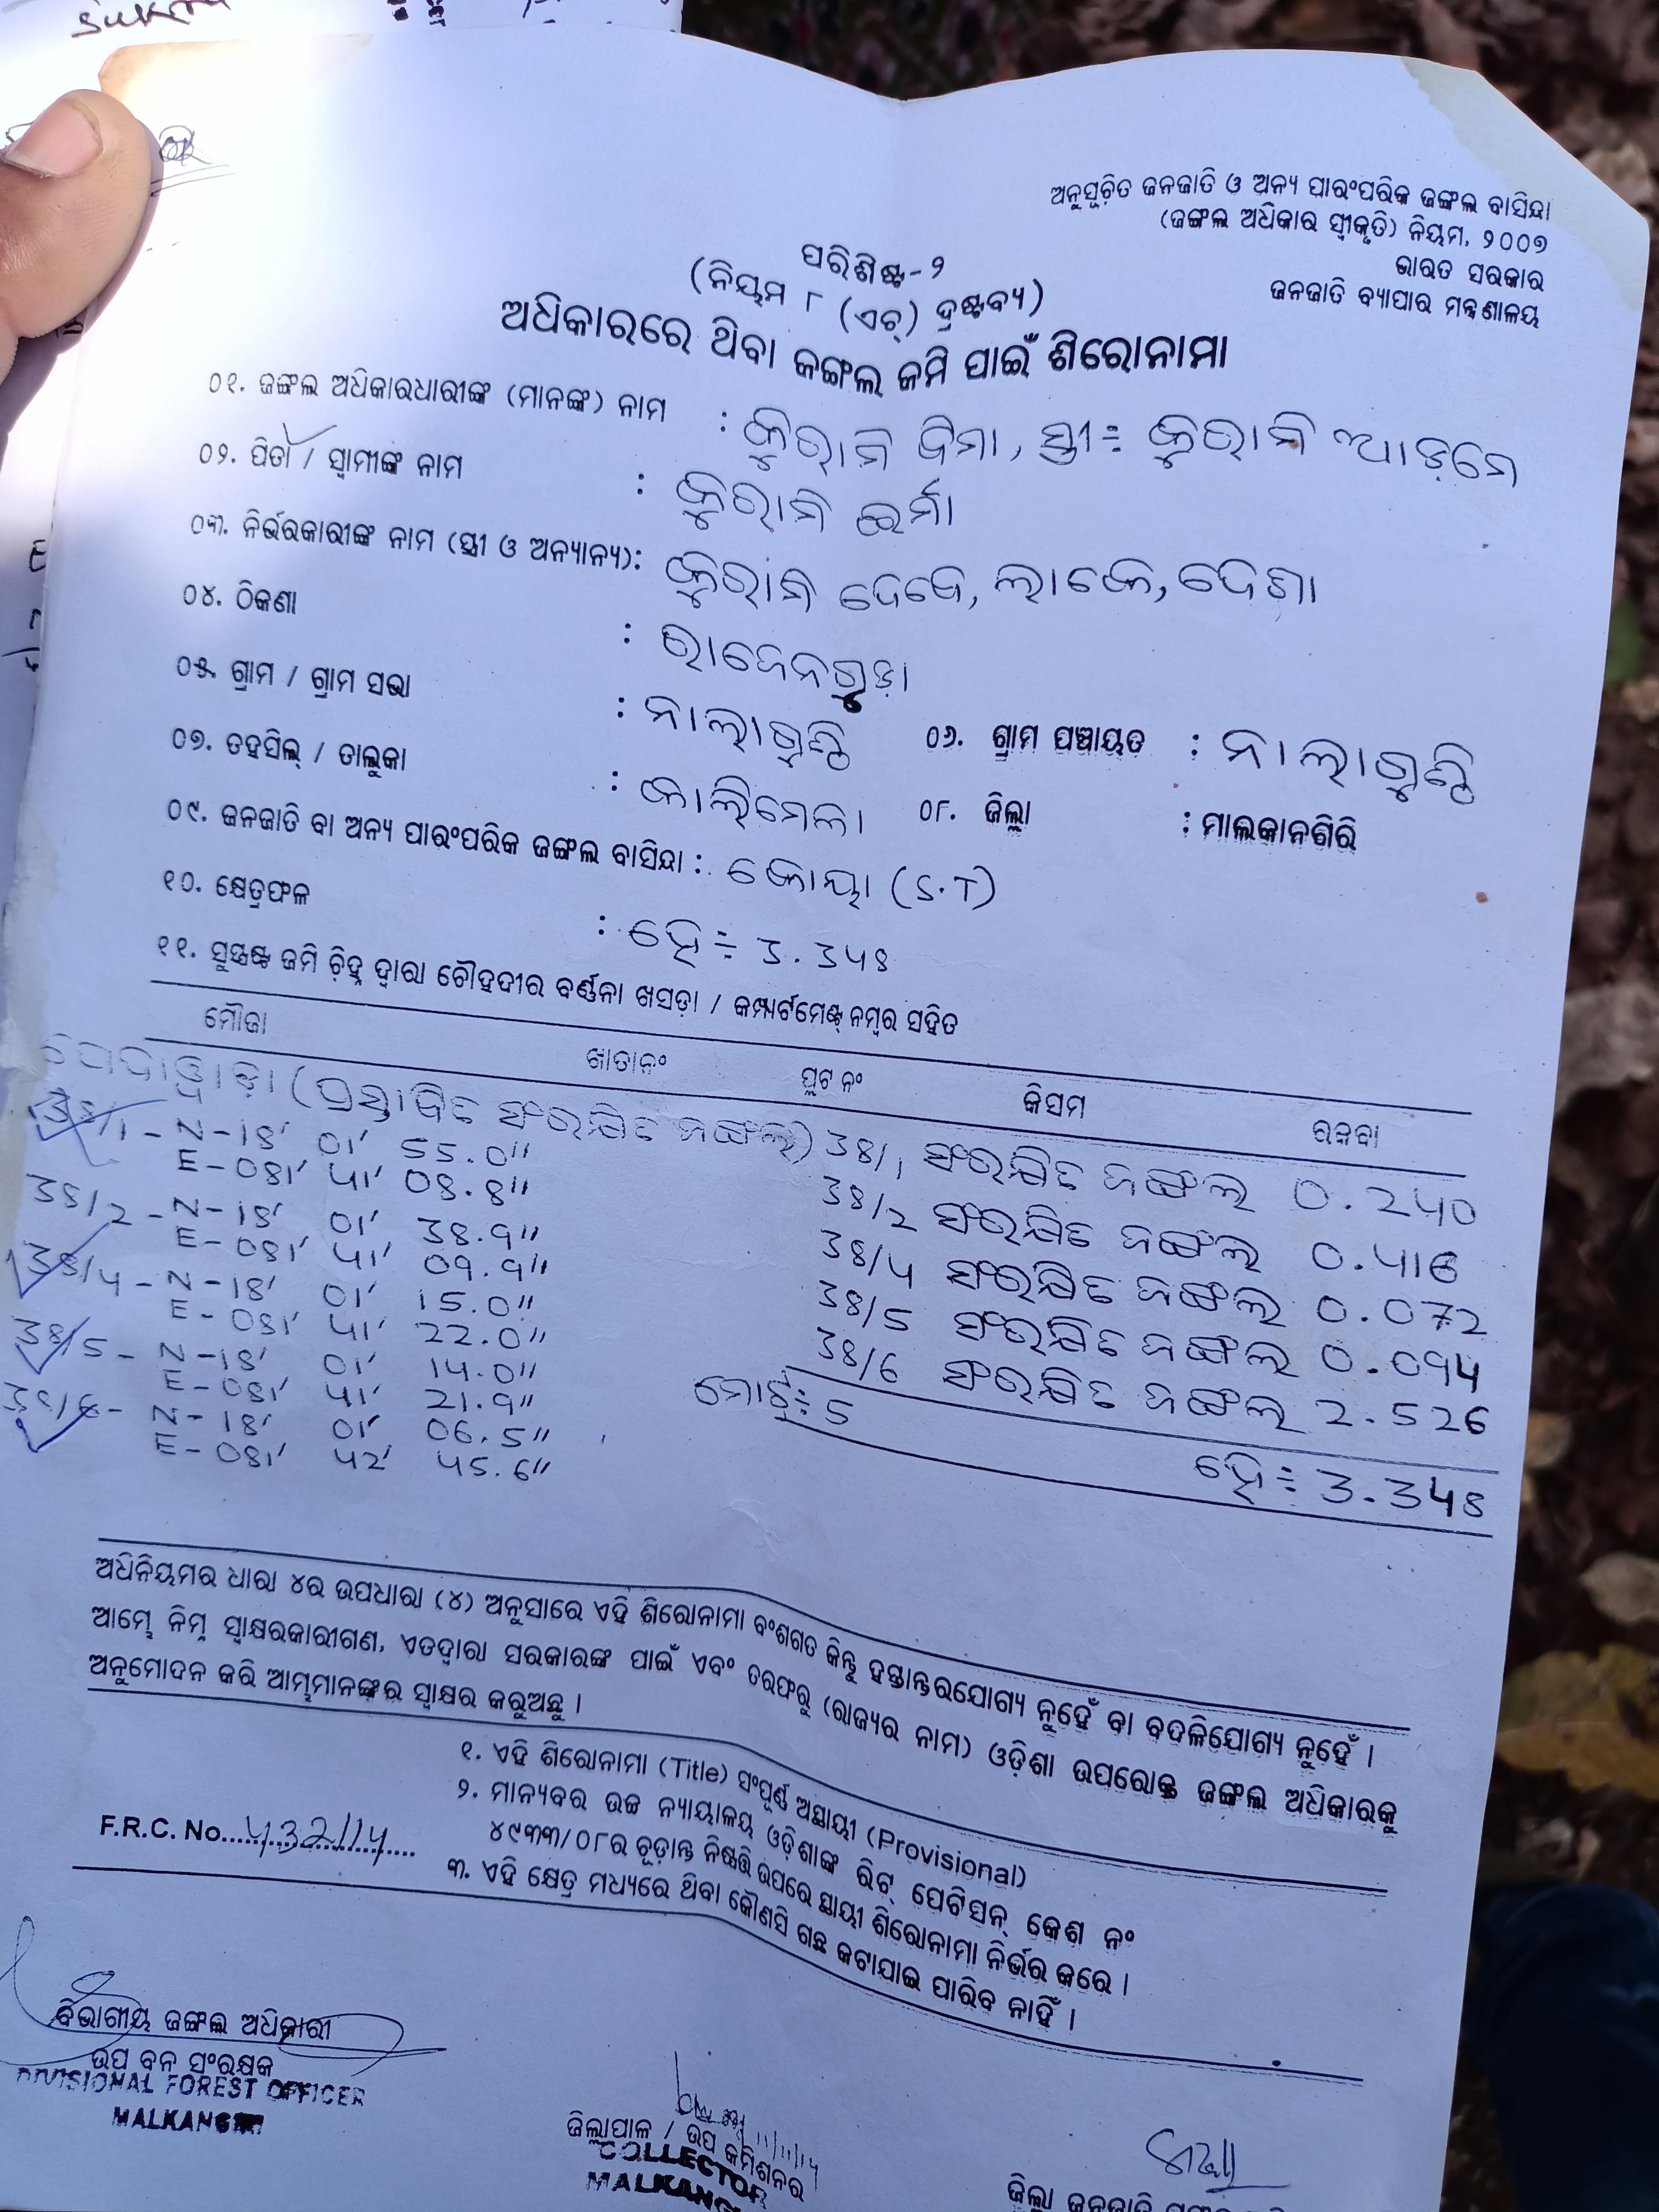 ଅନୁସୂଚିତ ଜନଜାତି ଓ ଅନ୍ୟ ପାରଂପରିକ ଜଙ୍ଗଲ ବାସିନ୍ଦା
(ଜଙ୍ଗଲ ଅଧିକାର ସ୍ୱୀକୃତି) ନିୟମ, ୨୦୦୭
ଭାରତ ସରକାର
ଜନଜାତି ବ୍ୟାପାର ମନ୍ତ୍ରଣାଳୟ
ପରିଶିଷ୍ଟ-୨
(ନିୟମ ୮ (ଏଚ୍) ଦ୍ରଷ୍ଟବ୍ୟ)
ଅଧିକାରରେ ଥିବା ଜଙ୍ଗଲ ଜମି ପାଇଁ ଶିରୋନାମା
୦୧. ଜଙ୍ଗଲ ଅଧିକାରଧାରୀଙ୍କ (ମାନଙ୍କ) ନାମ : କୁରାମି ବିମା, ସ୍ତ୍ରୀ÷ କୁରାମି ଆଡ଼ମେ
୦୨. ପିତା / ସ୍ୱାମୀଙ୍କ ନାମ : କୁରାମି ଇର୍ମା
୦୩. ନିର୍ଭରକାରୀଙ୍କ ନାମ (ସ୍ତ୍ରୀ ଓ ଅନ୍ୟାନ୍ୟ): କୁରାମି ଦେବେ, ଲାକେ, ଦେଶା
୦୪. ଠିକଣା : ରାଜେନଗୁଡ଼ା
୦୫. ଗ୍ରାମ / ଗ୍ରାମ ସଭା : ନାଲାଗୁଣ୍ଠି ୦୬. ଗ୍ରାମ ପଞ୍ଚାୟତ : ନାଲାଗୁଣ୍ଠି
୦୭. ତହସିଲ୍ / ତାଲୁକା : କାଲିମେଳା ୦୮. ଜିଲ୍ଲା : ମାଲକାନଗିରି
୦୯. ଜନଜାତି ବା ଅନ୍ୟ ପାରଂପରିକ ଜଙ୍ଗଲ ବାସିନ୍ଦା : କୋୟା (S.T)
୧୦. କ୍ଷେତ୍ରଫଳ : ହେ÷ 3.348
୧୧. ସୁସ୍ପଷ୍ଟ ଜମି ଚିହ୍ନ ଦ୍ୱାରା ଚୌହଦୀର ବର୍ଣ୍ଣନା ଖସଡ଼ା / କମ୍ପାର୍ଟମେଣ୍ଟ୍ ନମ୍ବର ସହିତ
ମୌଜା ଖାତାନଂ ପ୍ଲଟ ନଂ କିସମ ରକବା
(ପ୍ରସ୍ତାବିତ ସଂରକ୍ଷିତ ଜଙ୍ଗଲ) 38/1 ସଂରକ୍ଷିତ ଜଙ୍ଗଲ 0.240
38/1 - N-18' 01' 55.0"
E-081' 41' 08.8"
38/2 - N-18' 01' 38.9" 38/2 ସଂରକ୍ଷିତ ଜଙ୍ଗଲ 0.416
E-081' 41' 09.9"
38/4 - N-18' 01' 15.0" 38/4 ସଂରକ୍ଷିତ ଜଙ୍ଗଲ 0.072
E-081' 41' 22.0"
38/5 - N-18' 01' 14.0" 38/5 ସଂରକ୍ଷିତ ଜଙ୍ଗଲ 0.094
E-081' 41' 21.9"
38/6 - N-18' 01' 06.5" 38/6 ସଂରକ୍ଷିତ ଜଙ୍ଗଲ 2.526
E-081' 42' 45.6"
ମୋଟ÷ 5 ହେ÷ 3.348
ଅଧିନିୟମର ଧାରା ୪ର ଉପଧାରା (୪) ଅନୁସାରେ ଏହି ଶିରୋନାମା ବଂଶଗତ କିନ୍ତୁ ହସ୍ତାନ୍ତରଯୋଗ୍ୟ ନୁହେଁ ବା ବଦଳିଯୋଗ୍ୟ ନୁହେଁ ।
ଆମ୍ଭେ ନିମ୍ନ ସ୍ୱାକ୍ଷରକାରୀଗଣ, ଏତଦ୍ୱାରା ସରକାରଙ୍କ ପାଇଁ ଏବଂ ତରଫରୁ (ରାଜ୍ୟର ନାମ) ଓଡ଼ିଶା ଉପରୋକ୍ତ ଜଙ୍ଗଲ ଅଧିକାରକୁ
ଅନୁମୋଦନ କରି ଆମ୍ଭମାନଙ୍କର ସ୍ୱାକ୍ଷର କରୁଅଛୁ ।
୧. ଏହି ଶିରୋନାମା (Title) ସଂପୂର୍ଣ୍ଣ ଅସ୍ଥାୟୀ (Provisional)
୨. ମାନ୍ୟବର ଉଚ୍ଚ ନ୍ୟାୟାଳୟ ଓଡ଼ିଶାଙ୍କ ରିଟ୍ ପେଟିସନ୍ କେଶ ନଂ
୪୯୩୩/୦୮ର ଚୂଡ଼ାନ୍ତ ନିଷ୍ପତ୍ତି ଉପରେ ସ୍ଥାୟୀ ଶିରୋନାମା ନିର୍ଭର କରେ ।
୩. ଏହି କ୍ଷେତ୍ର ମଧ୍ୟରେ ଥିବା କୌଣସି ଗଛ କଟାଯାଇ ପାରିବ ନାହିଁ ।
F.R.C. No. 432/14
ବିଭାଗୀୟ ଜଙ୍ଗଲ ଅଧିକାରୀ
ଉପ ବନ ସଂରକ୍ଷକ
DIVISIONAL FOREST OFFICER
MALKANGIRI
ଜିଲ୍ଲାପାଳ / ଉପ କମିଶନର
COLLECTOR
ଜିଲ୍ଲା ଜନଜାତି